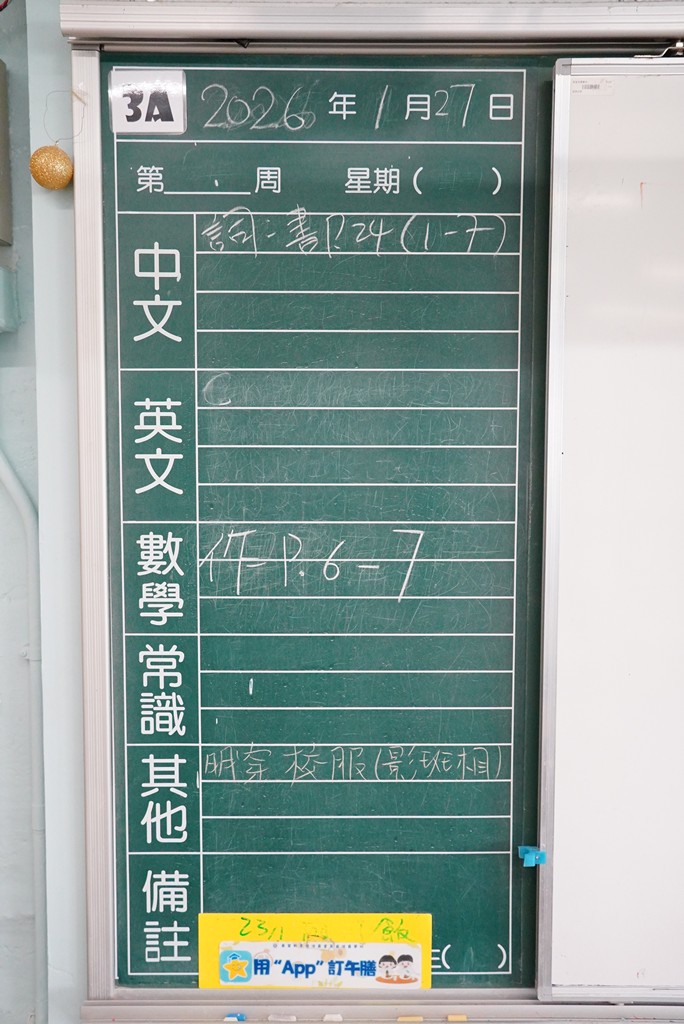 3A 2026年1月27日
第 周 星期( )
中文
詞：書P.24(1-7)
英文
C
數學
作P.6-7
常識
其他
明穿校服(影班相)
備註
23/1 飯
用“App”訂午膳
( )